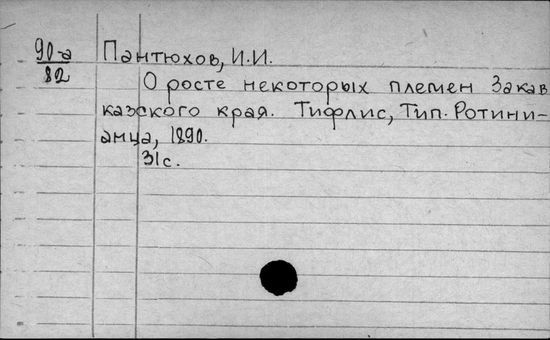 90-а Пантюхов, И.И.
82
О росте некоторых племен Закав
казского края. Тифлис, Тип. Ротини-
анца, 1890.
31с.